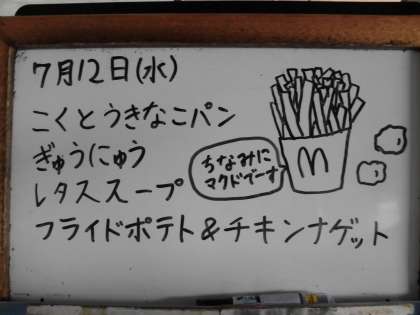 7月12日(水)
こくとうきなこパン
ぎゅうにゅう
レタススープ
フライドポテト&チキンナゲット
ちなみに
マクドでーす
M